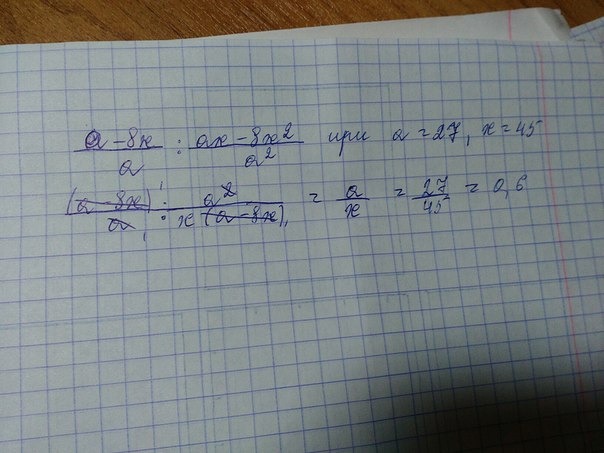 a - 8x / a : ax - 8x² / a² при a = 27, x = 45
(a - 8x) / a : a² / x (a - 8x) = a / x = 27 / 45 = 0,6